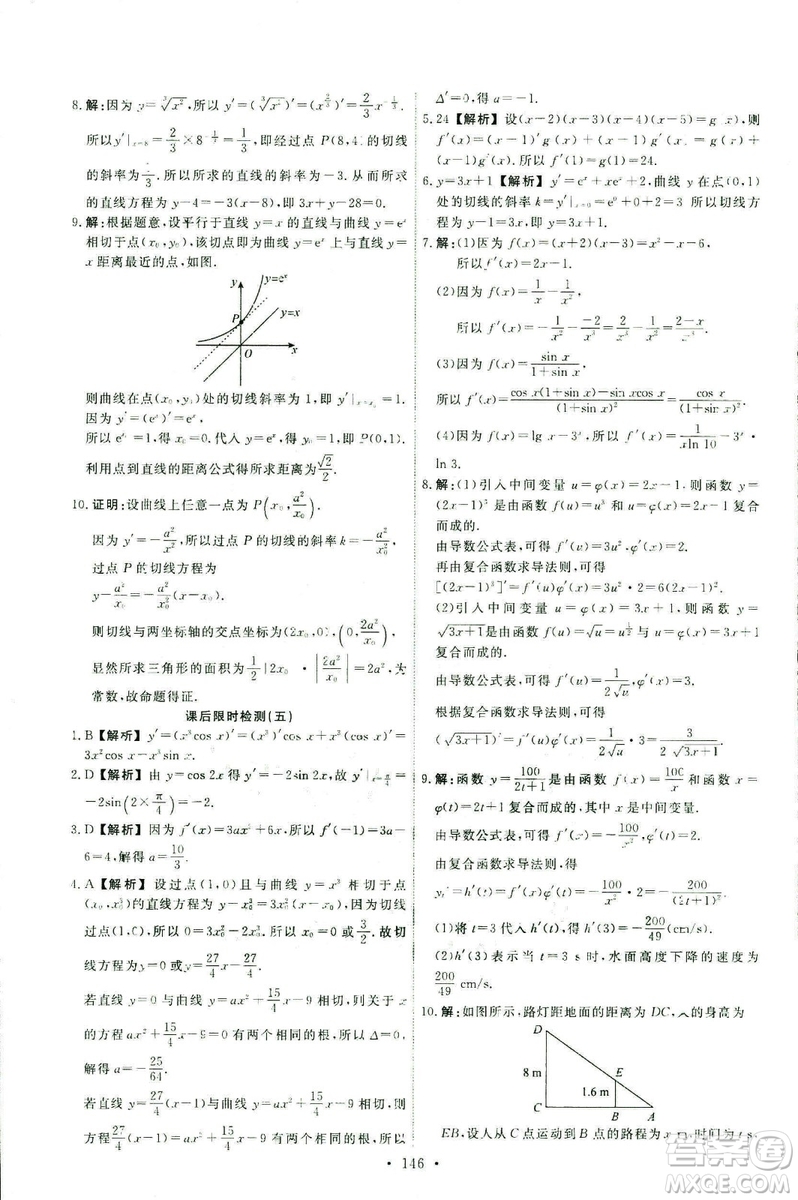 8.解:因为 y=∛x²,所以 y′=(∛x²)′=(x^(2/3))′=2/3 x^(-1/3).
所以y′|x=8=2/3×8^(-1/3)=1/3,即经过点 P(8,4)的切线
的斜率为1/3.所以所求的直线的斜率为-3.从而所求
的直线方程为 y-4=-3(x-8),即3x+y-28=0.
9.解:根据题意,设平行于直线 y=x 的直线与曲线 y=eˣ
相切于点(x₀,y₀),该切点即为曲线 y=eˣ 上与直线 y=
x 距离最近的点,如图.
y
y=eˣ
y=x
P
O
x
则曲线在点(x₀,y₀)处的切线斜率为1,即 y′|x=x₀=1.
因为 y′=(eˣ)′=eˣ,
所以 e^x₀=1,得 x₀=0.代入 y=eˣ,得 y₀=1,即 P(0,1).
利用点到直线的距离公式得所求距离为√2/2.
10.证明:设曲线上任意一点为 P(x₀,a²/x₀).
因为 y′=-a²/x²,所以过点 P 的切线的斜率 k=-a²/x₀²,
过点 P 的切线方程为
y-a²/x₀=-a²/x₀²(x-x₀).
则切线与两坐标轴的交点坐标为(2x₀,0),(0,2a²/x₀).
显然所求三角形的面积为1/2|2x₀·|2a²/x₀|=2a²,为
常数,故命题得证.
课后限时检测(五)
1.B【解析】y′=(x³cos x)′=(x³)′cos x+x³(cos x)′=
3x²cos x-x³sin x.
2.D【解析】由 y=cos 2x得y′=-2sin 2x,故 y′|x=π/4=
-2sin(2×π/4)=-2.
3.D【解析】因为 f′(x)=3ax²+6x,所以 f′(-1)=3a-
6=4,解得 a=10/3.
4.A【解析】设过点(1,0)且与曲线 y=x³ 相切于点
(x₀,x₀³)的直线方程为 y-x₀³=3x₀²(x-x₀),因为直线
过点(1,0),所以 0-x₀³=3x₀²(1-x₀),得 x₀=0 或3/2.故切
线方程为 y=0 或 y=27/4x-27/4.
若直线方程为 y=0,与 y=ax²+15/4x-9 相切,则关于 x
的方程 ax²+15/4x-9=0 有两个相同的根,所以 Δ=0,
解得 a=-25/64.
若直线方程为 y=27/4(x-1),与 y=ax²+15/4x-9 相切,则
方程27/4(x-1)=ax²+15/4x-9 有两个相同的根,所以
Δ′=0,得 a=-1.
5.24【解析】设(x-2)(x-3)(x-4)(x-5)=g(x),则
f′(x)=[(x-1)g(x)]′=g(x)+(x-1)g′(x)=g(x)+
(x-1)g′(x).所以 f′(1)=g(1)=24.
6.y=3x+1【解析】y′=eˣ+x·eˣ+2,曲线 y 在点(0,1)
处的切线的斜率 k=y′|x=0=e⁰+0+2=3,所以切线方
程为 y-1=3x,即 y=3x+1.
7.解:(1)因为 f(x)=(x+2)(x-3)=x²-x-6,
所以f′(x)=2x-1.
(2)因为 f(x)=1/x-1/x²,
所以 f′(x)=-1/x²-(-2/x³)=-1/x²+2/x³.
(3)因为 f(x)=sin x/(1+sin x),
所以 f′(x)=[cos x(1+sin x)-sin xcos x]/(1+sin x)²=cos x/(1+sin x)².
(4)因为 f(x)=lg x-3ˣ,所以 f′(x)=1/(xln 10)-3ˣ·
ln 3.
8.解:(1)引入中间变量 u=φ(x)=2x-1,则函数 y=
(2x-1)³是由函数 f(u)=u³ 与 u=φ(x)=2x-1复合
而成的.
由导数公式表,可得 f′(u)=3u²,φ′(x)=2.
再由复合函数求导法则,可得
[(2x-1)³]′=f′(u)φ′(x)=3u²·2=6u²=6(2x-1)².
(2)引入中间变量 u=φ(x)=3x+1,则函数 y=
√(3x+1)是由函数 f(u)=√u=u^(1/2)与 u=φ(x)=3x+1复
合而成的.
由导数公式表,可得 f′(u)=1/2 u^(-1/2)=1/(2√u),φ′(x)=3.
由复合函数求导法则,可得
(√(3x+1))′=f′(u)φ′(x)=1/(2√u)·3=3/(2√u)=3/(2√(3x+1)).
9.解:函数 y=100/(2t+1)是由函数 f(x)=100/x和函数 x=
φ(t)=2t+1复合而成的,其中 x 是中间变量.
由导数公式表,可得 f′(x)=-100/x²,φ′(t)=2.
由复合函数求导法则,可得
yₜ′=h′(t)=f′(x)φ′(t)=-100/x²·2=-200/(2t+1)².
(1)将 t=3 代入 h′(t),得 h′(3)=-200/49(cm/s).
(2)h′(3)表示当 t=3 s 时,水面高度下降的速度为
200/49 cm/s.
10.解:如图所示,路灯距地面的距离为 DC,人的身高为
D
E
8 m
1.6 m
C
B
A
EB,设人从 C 点运动到 B 点的路程为 x m,时间为 t s,
· 146 ·
答案圈
MXQE.COM